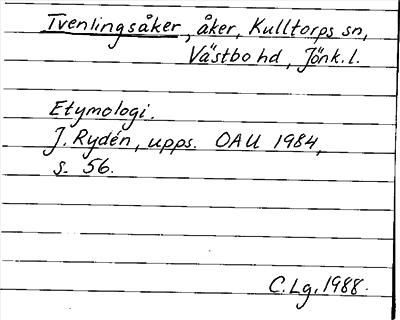 Tvenlingsåker, åker, Kulltorps sn,
Västbo hd, Jönk. l.
Etymologi.
J. Rydén, upps. OAU 1984,
s. 56.
C. Lg. 1988.